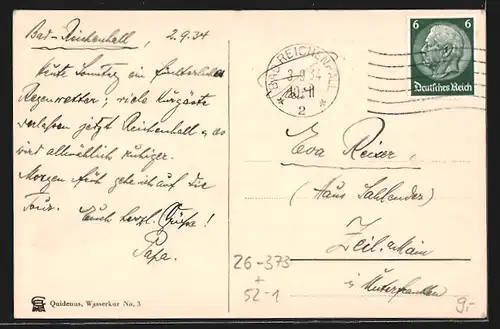 Bad-Reichenhall, 2.9.34
heute Sonntag ein
Regenwetter; viele Kurgäste
verlassen jetzt Reichenhall u. es
wird allmählich ruhiger.
Morgen früh gehe ich auf die
Tour.
Euch herzl. Grüße!
Papa.
Quidenus, Wasserkur No. 3
BAD REICHENHALL
3.9.34
2
6 6
Deutsches Reich
Eva Reiser,
(Haus Sahlender)
Zeil a. Main
i. Unterfranken
26-373
+
52-1
9,-